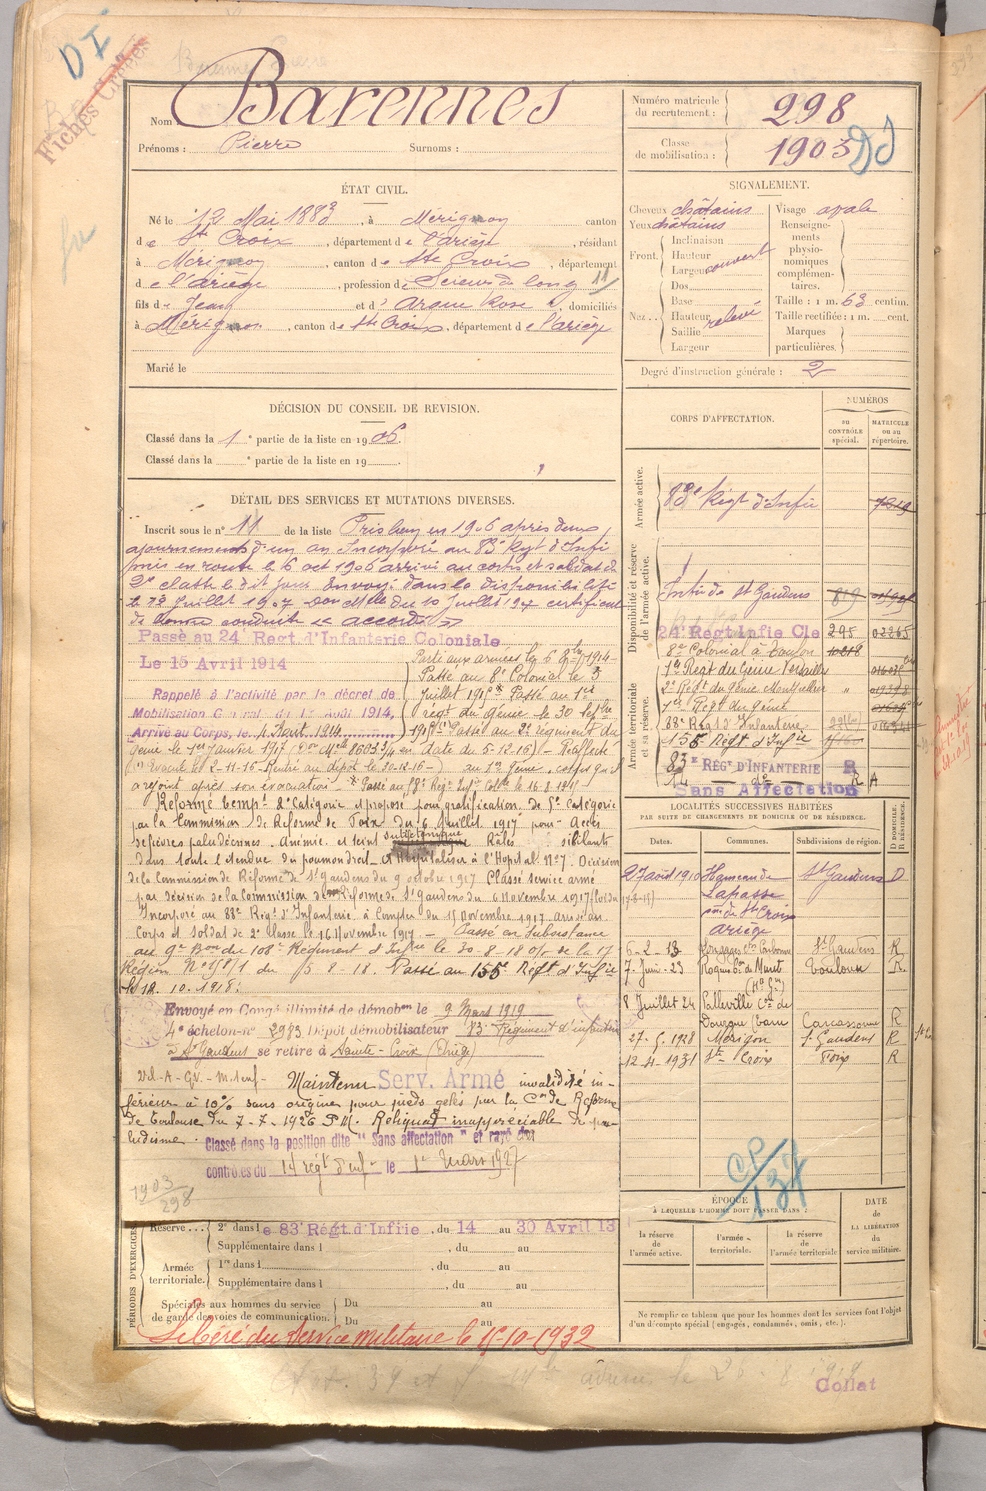 DI
Fiches Créées
Nom : Barennes
Prénoms : Pierre Surnoms :
Numéro matricule du recrutement : 298
Classe de mobilisation : 1903
ÉTAT CIVIL.
Né le 12 Mai 1883, à Mérignon canton
de Ste Croix, département de l'ariège, résidant
à Mérignon, canton de Ste Croix, département
de l'ariège, profession de Scieur de long
fils de Jean et d' Argue Rose, domiciliés
à Mérignon, canton de Ste Croix, département de l'ariège
Marié le
SIGNALEMENT.
Cheveux châtains
Yeux châtains
Front. Inclinaison Hauteur Largeur couvert
Nez... Dos Base Hauteur Saillie Largeur relevé
Visage ovale
Renseignements physionomiques complémentaires.
Taille : 1 m. 63 centim.
Taille rectifiée : 1 m. cent.
Marques particulières.
Degré d'instruction générale : 2
DÉCISION DU CONSEIL DE REVISION.
Classé dans la 1e partie de la liste en 1906.
Classé dans la e partie de la liste en 19
DÉTAIL DES SERVICES ET MUTATIONS DIVERSES.
Inscrit sous le n° 11 de la liste Pris bon en 1906 après deux
ajournements d'un an Incorporé au 83e Régt d'Infie
mis en route le 6 oct 1906 arrivé au corps et soldat de
2e classe le dit jour. Envoyé dans la disponibilité
le 12 Juillet 1907 certificat
de bonne conduite accordé
Passé au 24e Régt. d'Infanterie Coloniale
Le 15 Avril 1914
Rappelé à l'activité par le décret de
Mobilisation Général du 1er Août 1914,
Arrivé au Corps, le 4 Août 1914
Parti aux armées le 6 1914
Passé au 8e Colonial le 3
Juillet 191 Passé au 1er
régt du génie le 30 sept
Passé au 2e régiment du
génie le 1er janvier 1917 en date du 5-12-16) - Réaffecté
(Evacué le 2-11-16 - Rentré au dépôt le 30-12-16) au 1er Génie, corps qu'il
a rejoint après son évacuation - Passé au 8e Régt Infie Colle le 16.8.191
Réformé tempre 2e Catégorie et proposé pour gratification de 5e Catégorie
par la Commission de Réforme de Foix du 6 Juillet 1917 pour Accès
fébriles paludéens. Anémie et teint Râles sibilants
dans toute l'étendue du poumon droit Hospitaliser à l'Hopital N°7. Décision
de la Commission de Réforme de St Gaudens du 9 octobre 1917 Classé service armé
par décision de la Commission de Réforme de St Gaudens du 6 Novembre 1917
Incorporé au 88e Régt d'Infanterie à Compter du 15 Novembre 1917 arrivé au
Corps et Soldat de 2e Classe le 16 Novembre 1917 - Passé en Subsistance
au 9e Bon du 108e Régiment d'Infrie le 30.8.18 o/ de la 17
Région du 5.8.18. Passé au 155e Régt d'Infie
le 12.10.1918.
Envoyé en Congé illimité de démobon le 9 Mars 1919
4e échelon n° 2983 Dépôt démobilisateur 83e Régiment d'infanterie
à St Gaudens se retire à Sainte-Croix (Ariège)
Maintenu Serv. Armé invalidité in-
férieure à 10% sans origine pour pieds gelés par la Con de Réforme
de Toulouse du 7-7-1926 P.M. Reliquat inappréciable de pa-
ludisme.
Classé dans la position dite "Sans affectation" et rayé des
contrôles du 14 régt d'inf le 1er Mars 1927
1903
298
CORPS D'AFFECTATION.
NUMÉROS
AU CONTRÔLE spécial.
MATRICULE ou au répertoire.
Armée active.
83e Régt d'Infie
Disponibilité et réserve de l'armée active.
Infie de St Gaudens 819
24 Régt Infie Cle 295 02265
8e Colonial à Toulon
Armée territoriale et sa réserve.
1er Régt du Génie Versailles
2e Régt du génie Montpellier "
1er Régt du génie
88e Régt d'Infanterie
155e Régt d'Infie
83e RÉGt D'INFANTERIE R
Sans Affectation R A
LOCALITÉS SUCCESSIVES HABITÉES
PAR SUITE DE CHANGEMENTS DE DOMICILE OU DE RÉSIDENCE.
Dates. Communes. Subdivisions de région. D DOMICILE. R RÉSIDENCE.
27 août 1910 Hameau de Lapasse cne de Ste Croix ariège St Gaudens D
6-2-13 St Gaudens R
7 Juin-23 Roques Muret (Hte Gne) Toulouse R.
8 Juillet 24 Palleville Cton de Dourgne (Tarn) Carcassonne R
27-5-1928 Mérigon St Gaudens R
12-4-1931 Ste Croix Foix R
CP/137
ÉPOQUE
À LAQUELLE L'HOMME DOIT PASSER DANS :
la réserve de l'armée active.
l'armée territoriale.
la réserve de l'armée territoriale
DATE DE LA LIBÉRATION du service militaire.
Ne remplir ce tableau que pour les hommes dont les services font l'objet
d'un décompte spécial (engagés, condamnés, omis, etc.).
PÉRIODES D'EXERCICES
Réserve... 2e dans le 83e Régt. d'Infiie, du 14 au 30 Avril 13
Supplémentaire dans l , du au
Armée territoriale. 1re dans l , du au
Supplémentaire dans l , du au
Spéciales aux hommes du service de garde des voies de communication. Du au
Du au
Libéré du Service militaire le 15-10-1932
Collat